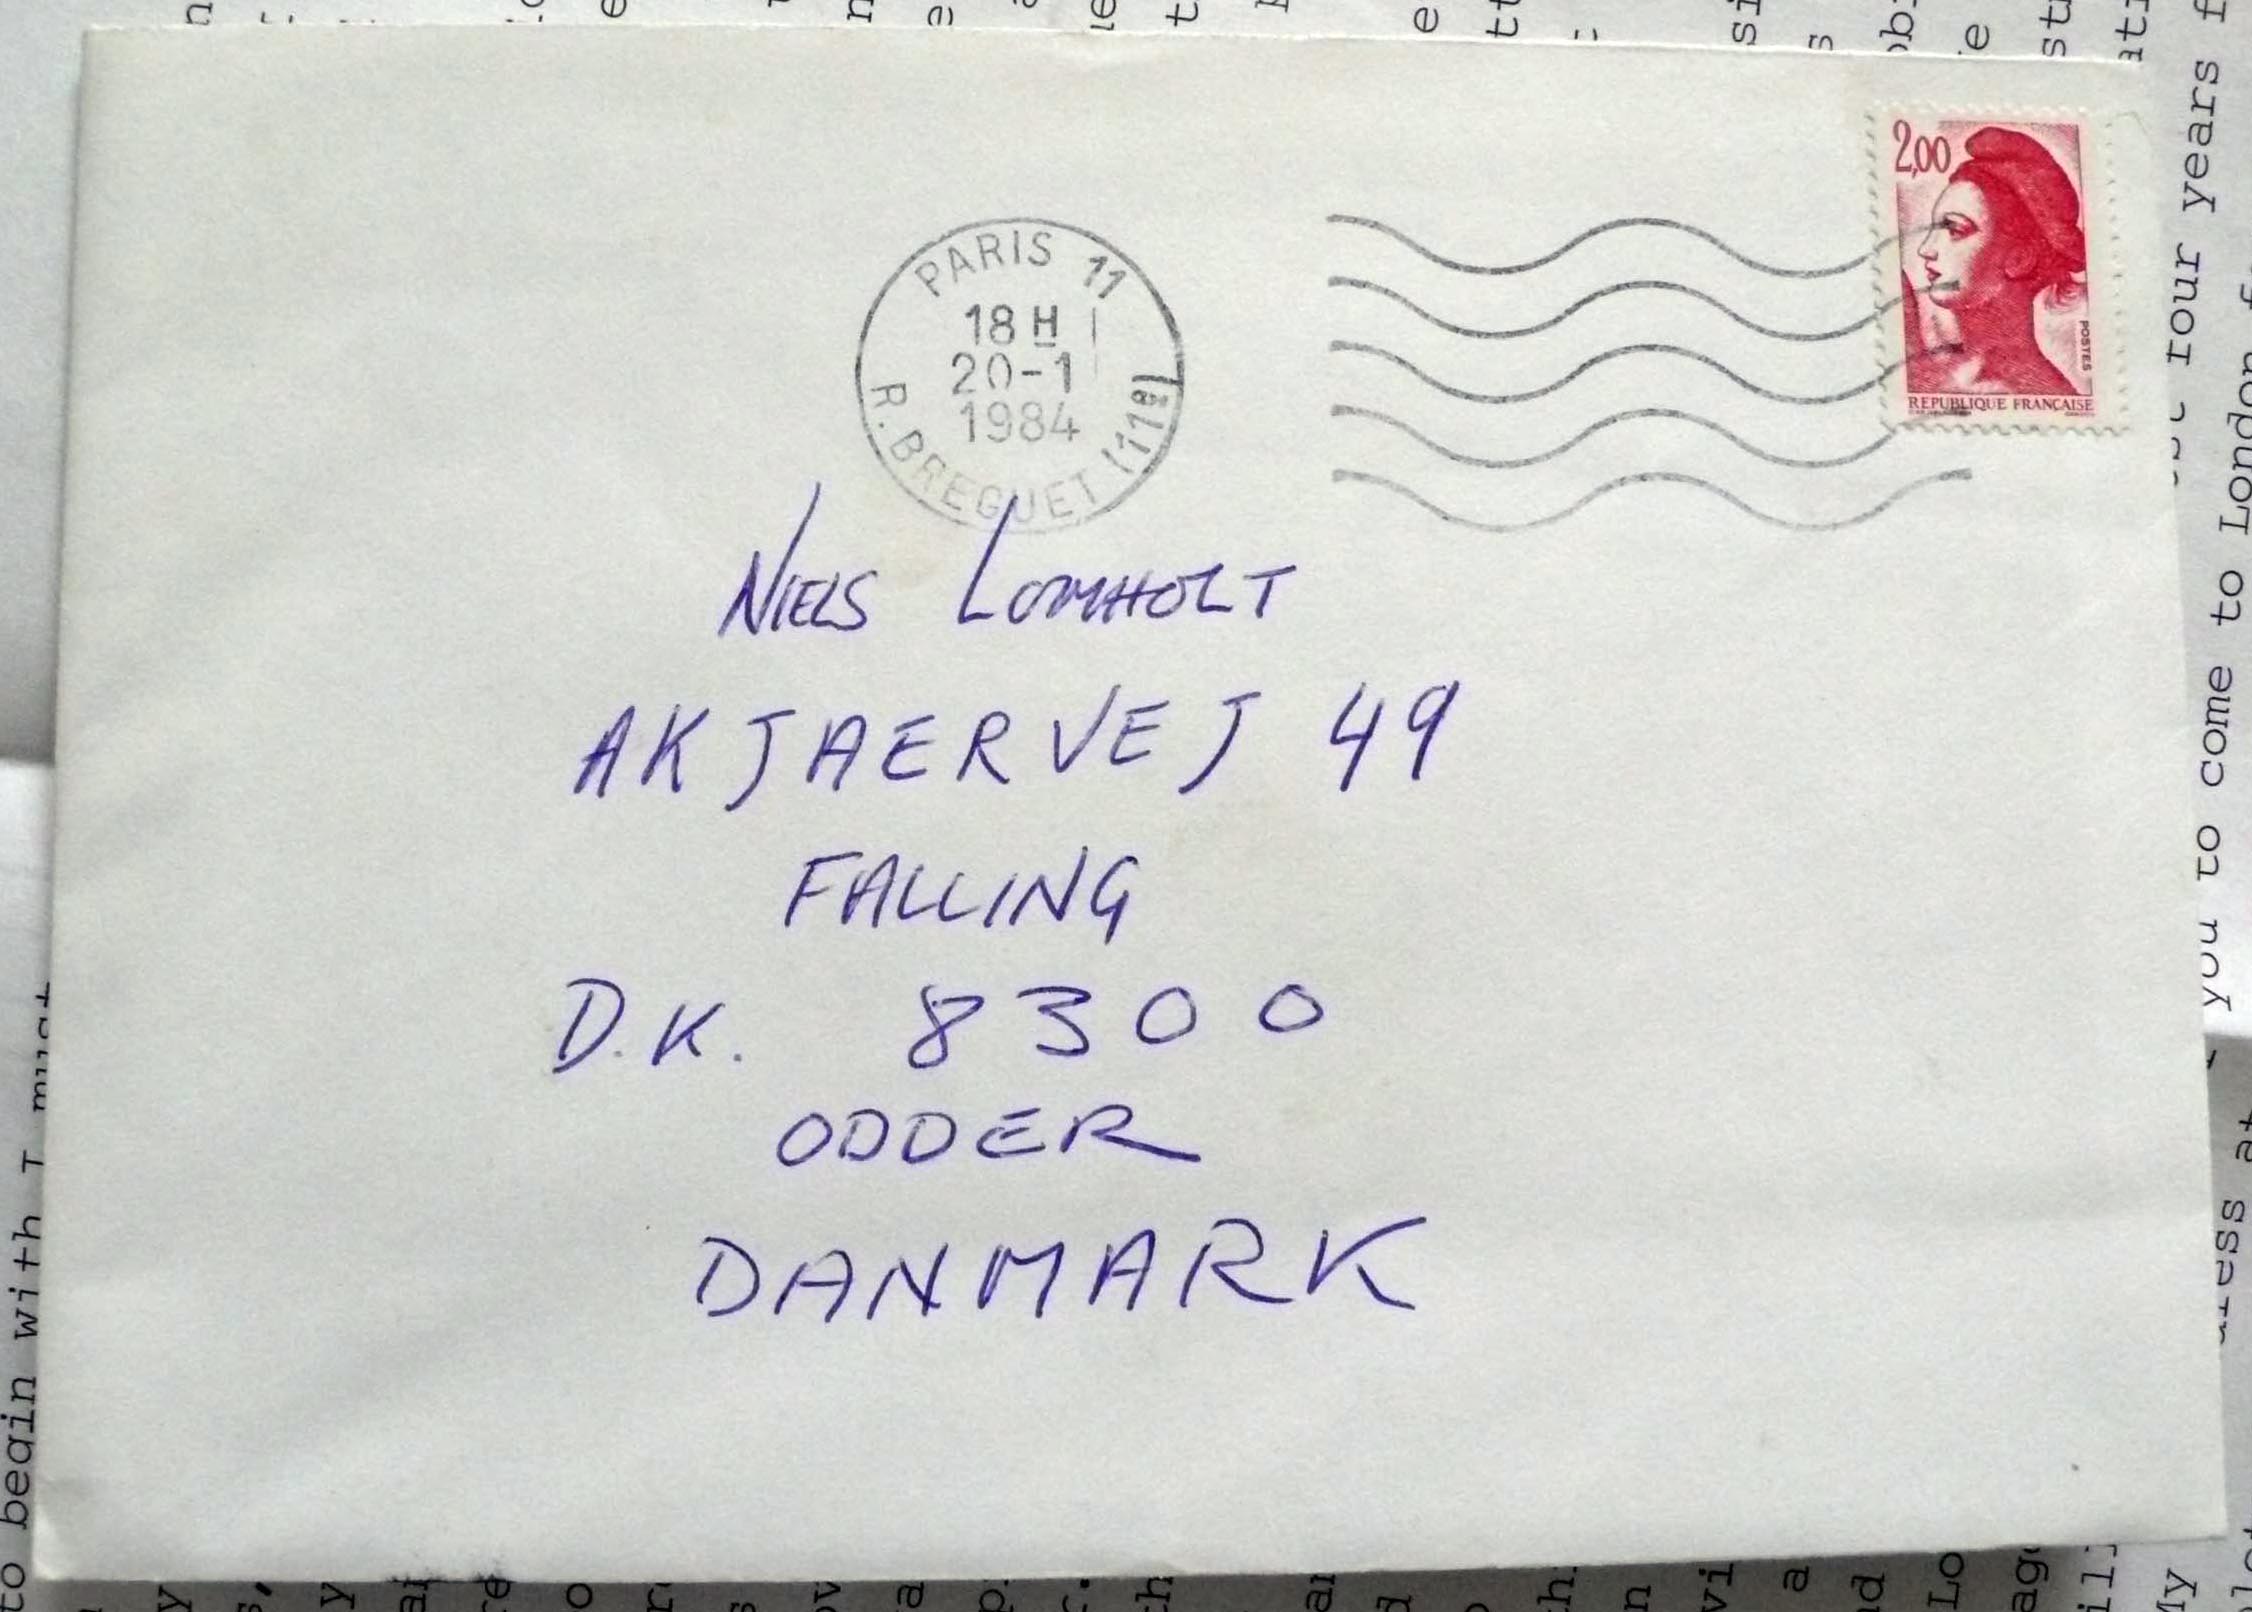 PARIS 11
18 H
20-1
1984
R. BREGUET (11e)
2,00
POSTES
REPUBLIQUE FRANÇAISE
NIELS LOMHOLT
AKJAERVEJ 49
FALLING
D.K. 8300
ODDER
DANMARK
to begin with I must
years
you to come to London